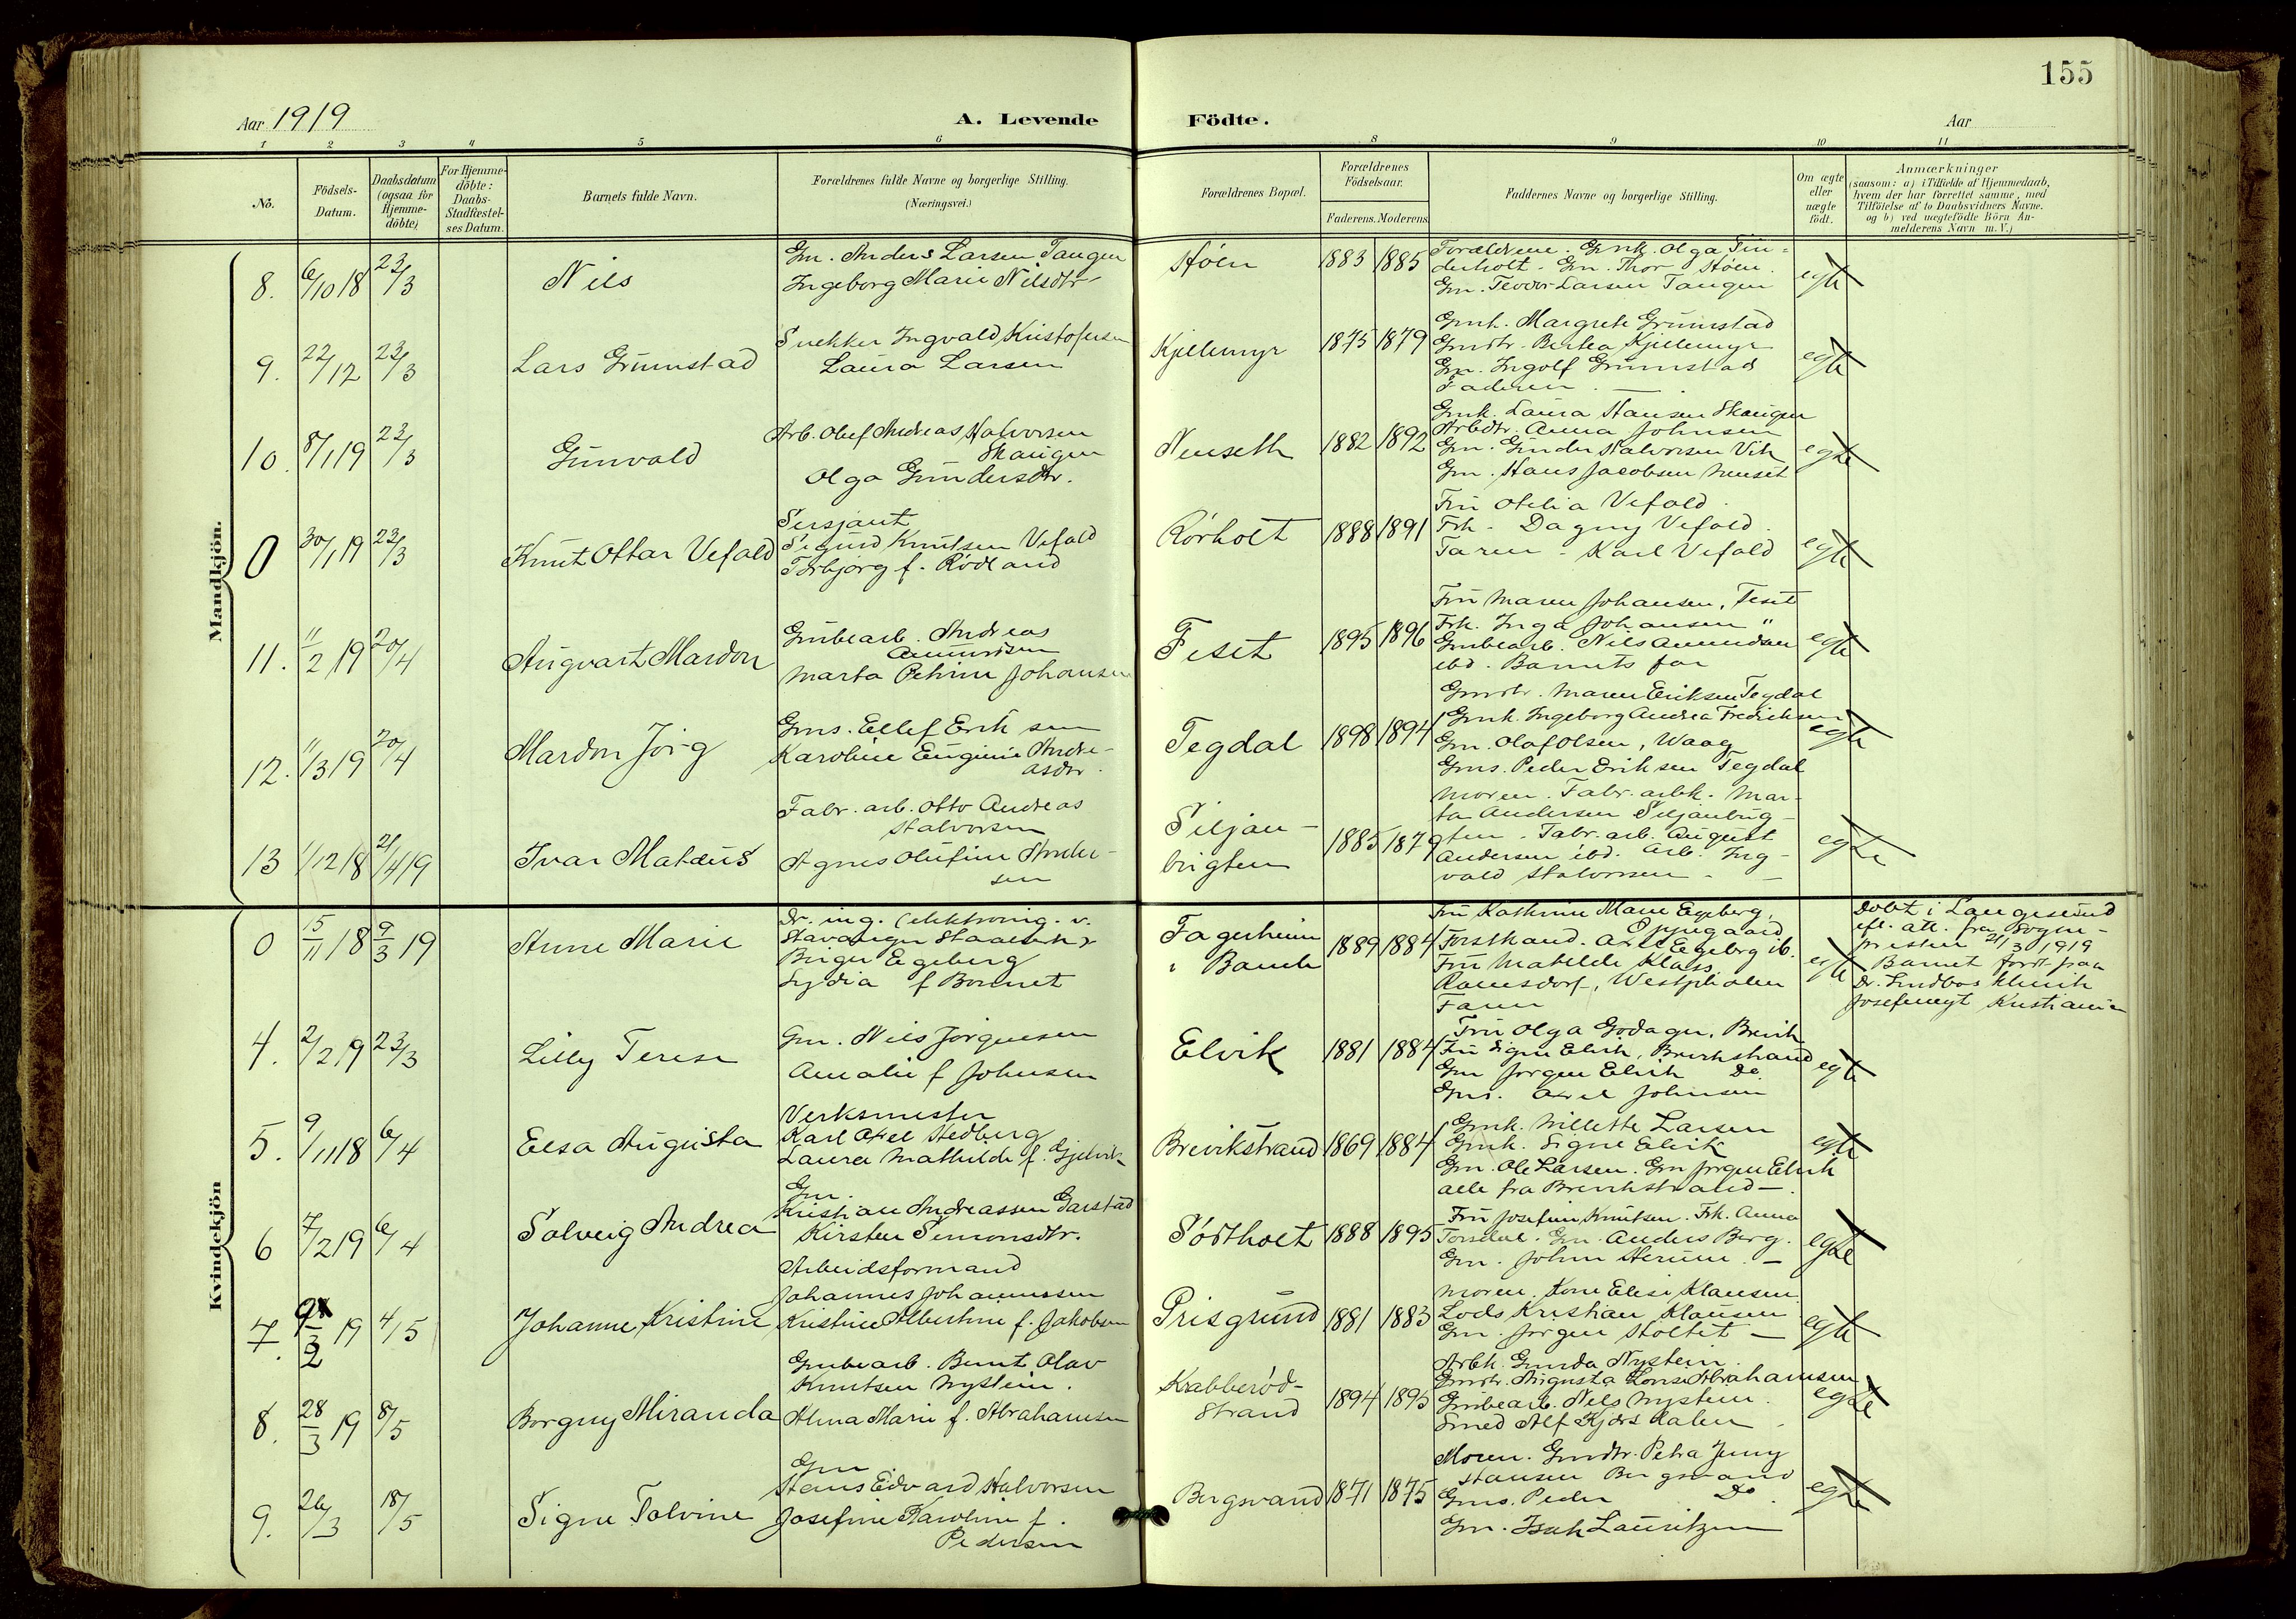 155
Aar 1919
A. Levende Födte.
Aar
1 2 3 4 5 6 8 9 10 11
No.
Födsels-
Datum.
Daabsdatum
(ogsaa for
Hjemme-
döbte)
For Hjemme-
döbte:
Daabs-
Stadfæstel-
ses Datum.
Barnets fulde Navn.
Forældrenes fulde Navne og borgerlige Stilling.
(Næringsvei.)
Forældrenes Bopæl.
Forældrenes
Födselsaar.
Faderens. Moderens.
Faddernes Navne og borgerlige Stilling.
Om ægte
eller
uægte
födt.
Anmærkninger
(saasom: a) i Tilfælde af Hjemmedaab,
hvem der har forrettet samme, med
Tilföielse af to Daabsvidners Navne.
og b) ved uægtefödte Börn An-
melderens Navn m. V.)
Mandkjön.
8. 6/10 18 23/3 Nils
Gm. Anders Larsen Tangen
Ingeborg Marie Nilsdtr
Støen 1883 1885
Forældrene. Gmk. Olga Tin-
derholt. Gm. Thor Støen.
Gm. Teodor Larsen Tangen
egte
9. 22/12 23/3 Lars Grumstad
Snekker Ingvald Kristofersen
Laura Larsen
Kjellemyr 1875 1879
Gmk. Margrete Grumstad
Gmdtr. Berta Kjellemyr
Gm. Ingolf Grumstad
Faderen
egte
10. 8/1 19 23/3 Gunvald
Arb. Olaf Andreas Halvorsen
Skaugen
Olga Gundersdtr.
Nenseth 1882 1892
Gmk. Laura Hansen Skaugen
Arbdtr. Anna Johnsen
Gm. Gunder Halvorsen Vik
Gm. Hans Jacobsen Nenset
egte
0 30/1 19 23/3 Knut Ottar Vefald
Sersjant
Sigurd Knutsen Vefald
Torbjørg f. Rødland
Rørholt 1888 1891
Fru Otelia Vefald.
Frk. Dagny Vefald.
Faren - Karl Vefald
egte
11. 11/2 19 20/4 Augvart Mardon
Grubearb. Andreas
Amundsen
Marta Petrine Johansen
Feset 1895 1896
Fru Maren Johansen, Feset
Frk. Inga Johansen "
Grubearb. Nils Amundsen
ibd. Barnets far
egte
12. 11/3 19 20/4 Mardon Jørg
Gms. Ellef Eriksen
Karoline Eugenie Andre-
asdtr.
Tegdal 1898 1894
Gmdtr. Maren Eriksen Tegdal
Gmk. Ingeborg Andrea Fredriksen
Gm. Olaf Olsen, Waag
Gms. Peder Eriksen Tegdal
egte
13 1/12 18 21/4 19 Ivar Matæus
Fabr. arb. Otto Andreas
Halvorsen
Agnes Olufine Ander-
sen
Siljan-
brigten 1885 1879
Moren. Fabr. arbk. Mar-
ta Andersen Siljanbrig-
ten. Fabr. arb. August
Andersen ibd. Arb. Ing-
vald Halvorsen
egte
Kvindekjön
0 15/11 18 9/3 19 Anne Marie
Dr. ing. (elektroing. v.
Stavanger Staalverk)
Birger Egeberg
Lydia f Bonnet
Fagerheim
i Bamle 1889 1884
Fru Kathrine Marie Egeberg,
Forstkand. Axel Egeberg ib.
Fru Matilde Klass
Ramsdorf, Westphalen
Faren
egte
Døbt i Langesund
eft. att. fra Sogne-
presten 21/3 1919
Barnet født paa
Dr. Lindbos klinik
Josefinegt Kristiania
4. 2/2 19 23/3 Lilly Terese
Gm. Nils Jørgensen
Amalie f Johnsen
Elvik 1881 1884
Fru Olga Godager, Brevik
Fru Signe Elvik, Brevikstrand
Gm Jørgen Elvik Do
Gm. Axel Johnsen
egte
5. 9/11 18 6/4 Elsa Augusta
Verksmester
Karl Axel Hedberg
Laura Mathilde f. Gjelvik
Brevikstrand 1869 1884
Gmk. Millette Larsen
Gmk. Signe Elvik
Gm. Ole Larsen. Gm Jørgen Elvik
alle fra Brevikstrand
egte
6 7/2 19 6/4 Solveig Andrea
Gm.
Kristian Andreassen Garstad
Kirsten Simonsdtr.
Sødtholt 1888 1895
Fru Josefine Knutsen. Frk. Anna
Torsdal. Gm. Anders Berg.
Gm. John Herum.
egte
7. 9/2 19 4/5 Johanne Kristine
Arbeidsformand
Johannes Johannessen
Kristine Albertine f. Jakobsen
Prisgrund 1881 1883
Moren. Kone Elise Klausen
Lods Kristian Klausen
Gm. Jørgen Stoltet
egte
8. 28/3 19 8/5 Borgny Miranda
Grubearb. Bernt Olav
Knutsen Nystein.
Alma Marie f. Abrahamsen
Krabberød-
strand 1894 1895
Arbk. Gunda Nystein.
Gmdtr. Augusta Lovise Abrahamsen
Grubearb. Nils Nystein.
Smed Alf Kjørsdalen
egte
9. 26/3 18/5 Signe Tolvine
Gm
Hans Edvard Halvorsen
Josefine Karoline f.
Pedersen
Bergsvand 1871 1875
Moren. Gmdtr. Petra Jenny
Hansen Bergsvand
Gms. Peder Do
Gm. Isak Lauritzen
egte